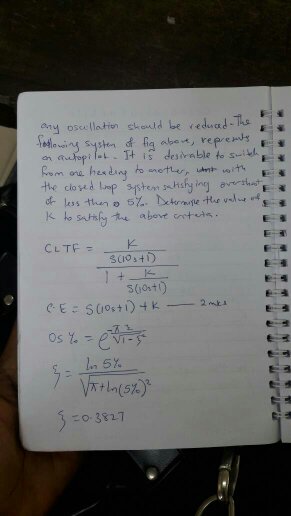 any oscillation should be reduced. The
following system of fig above, represents
an autopilot. It is desirable to switch
from one heading to another, with
the closed loop system satisfying overshoot
of less than 5%. Determine the value of
K to satisfy the above criteria.
CLTF = K
S(10s+1)
1 + K
S(10s+1)
C.E = S(10s+1) + K —— 2mks
OS % = e^-π ξ / √1-ξ²
ξ = ln 5%
√π+ln(5%)²
ξ = 0.3827